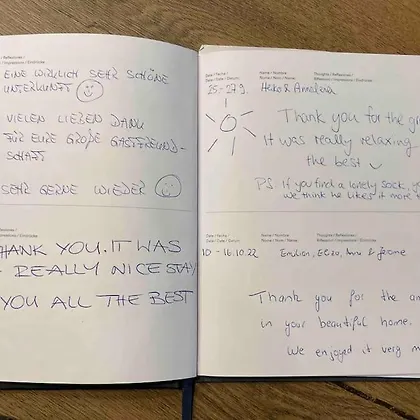 / Reflections /
/ Impressions / Eindrücke
EINE WIRKLICH SEHR SCHÖNE
UNTERKUNFT
VIELEN LIEBEN DANK
FÜR EURE GROßE GASTFREUND-
SCHAFT
SEHR GERNE WIEDER
/ Reflections /
/ Impressions / Eindrücke
HANK YOU. IT WAS
REALLY NICE STAY
YOU ALL THE BEST
Date / Fecha /
Date / Data / Datum:
Name / Nombre
Nome / Nom / Name:
Thoughts / Reflexiones /
Riflessioni / Impressions / Eindrücke
25.-27.9.
Heiko & Annalena
Thank you for the
It was really relaxing
the best
PS. If you find a lonely sock,
we think he likes it more
Date / Fecha /
Date / Data / Datum:
Name / Nombre
Nome / Nom / Name:
Thoughts / Reflexiones /
Riflessioni / Impressions / Eindrücke
10 - 16.10.22
Emilien, Enzo, & Jerome
Thank you for the
in your beautiful home.
We enjoyed it very